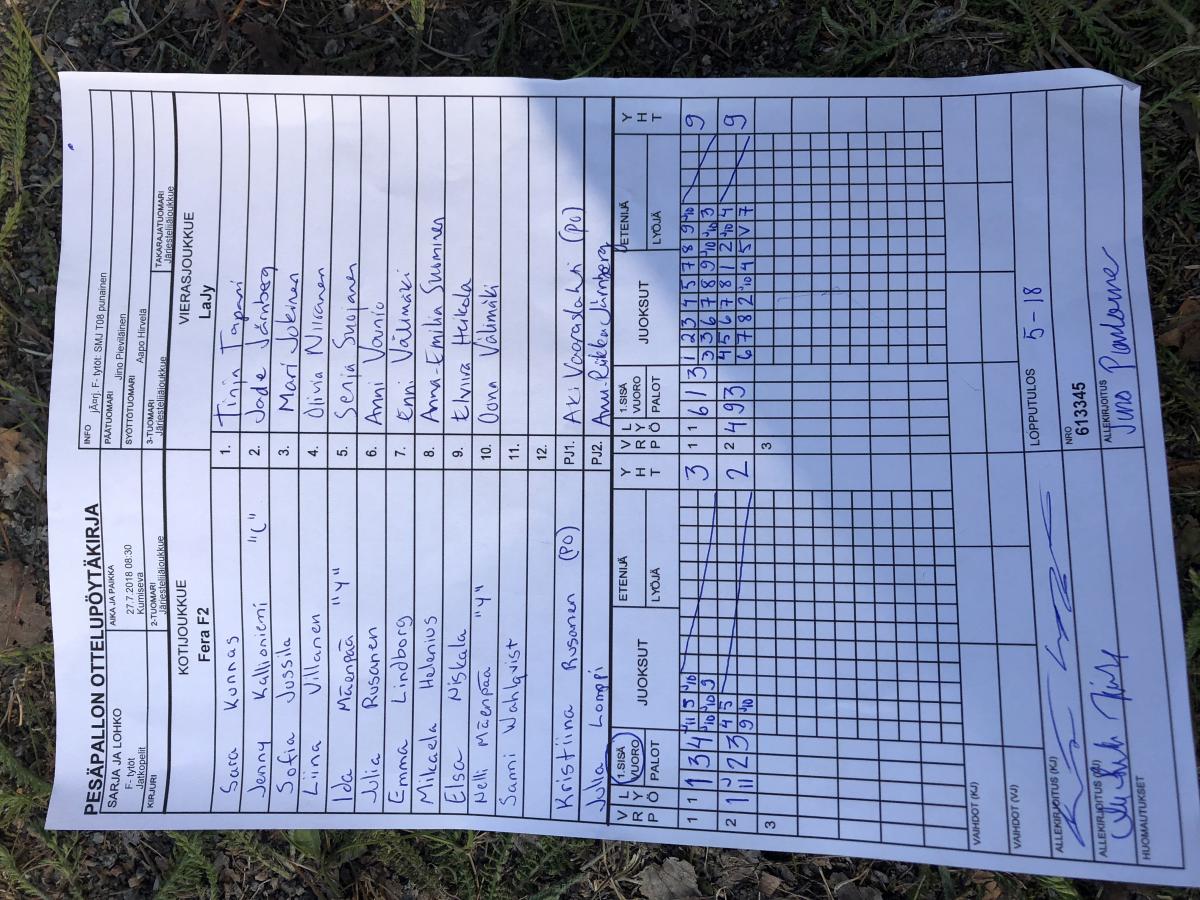 PESÄPALLON OTTELUPÖYTÄKIRJA
SARJA JA LOHKO
F- tytöt
Jatkopelit
AIKA JA PAIKKA
27.7.2018 08:30
Kumiseva
INFO jÃ¤rj. F- tytöt: SMJ T08 punainen
PÄÄTUOMARI Jino Pieviläinen
SYÖTTÖTUOMARI Aapo Hirvelä
KIRJURI
2-TUOMARI
Järjestelijäjoukkue
3-TUOMARI
Järjestelijäjoukkue
TAKARAJATUOMARI
Järjestelijäjoukkue
KOTIJOUKKUE
Fera F2
VIERASJOUKKUE
LaJy
Sara Kunnas 1. Tinja Tapani
Jenny Kallioniemi "L" 2. Jade Järnberg
Sofia Jussila 3. Mari Jokinen
Liina Villanen 4. Olivia Niiranen
Ida Mäenpää "Y" 5. Senja Suojanen
Julia Rusanen 6. Anni Vainio
Emma Lindborg 7. Enni Välimäki
Mikaela Helenius 8. Anna-Emilia Suominen
Elsa Niskala 9. Elviira Heikola
Nelli Mäenpää "Y" 10. Oona Välimäki
Sanni Wahlqvist 11.
12.
Kristiina Rusanen (PO) PJ1. Aki Vaaraslahti (PO)
Juha Lomppi PJ2. Anu-Riikka Järnberg
V R Ö L Y P 1.SISÄ VUORO PALOT JUOKSUT ETENIJÄ LYÖJÄ Y H T
V R Ö L Y P 1.SISÄ VUORO PALOT JUOKSUT ETENIJÄ LYÖJÄ Y H T
1 1 1 3 4 3
1 1 6 1 3 1 2 3 4 5 7 8 9 10 9
2 2 3 2
2 4 9 3 4 5 6 7 8 1 2 10 4 9
6 7 8 2 10 4 5 V 7
3
3
VAIHDOT (KJ)
VAIHDOT (VJ)
LOPPUTULOS 5 - 18
ALLEKIRJOITUS (KJ)
NRO
613345
ALLEKIRJOITUS (VJ)
ALLEKIRJOITUS
HUOMAUTUKSET